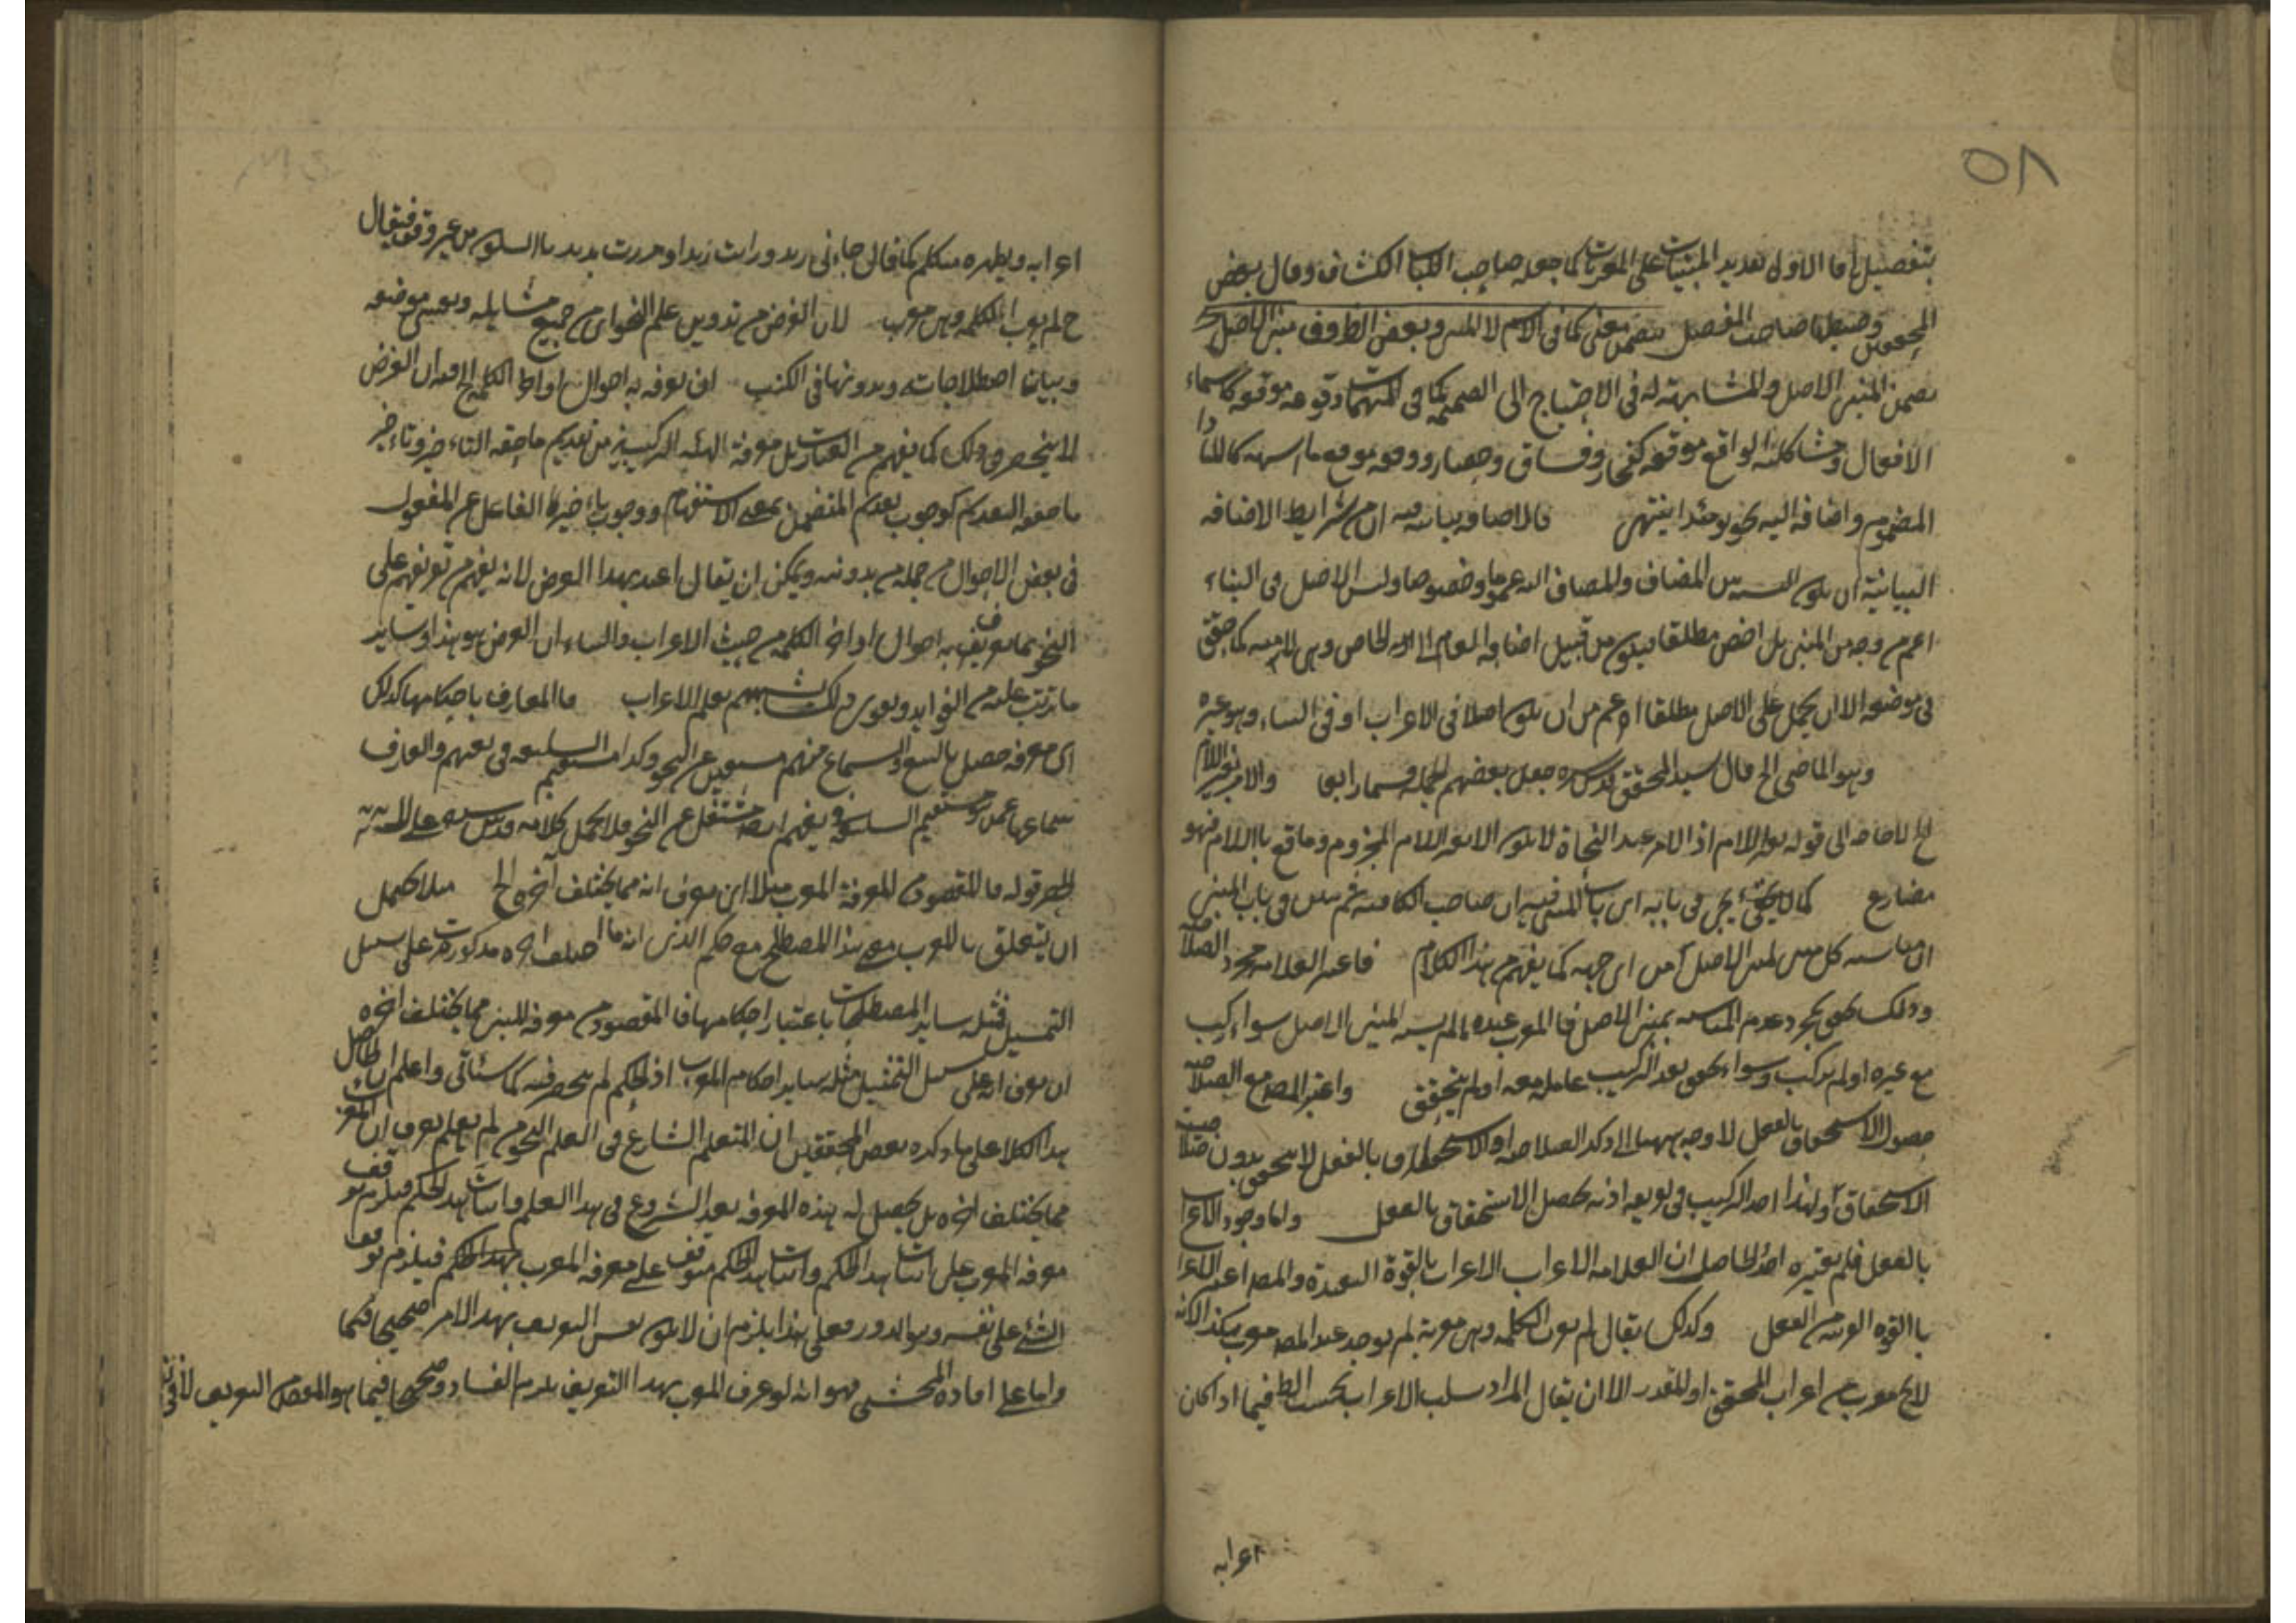 ٥٨
بتفصيل اما الاول تعديد المبنيات على المعربات كما جعله صاحب اللباب الكشاف وقال بعض
المحققين وضبطها صاحب المفصل بتضمن معنى كما في الاسم لا المبنى وبعض الظروف مبنى الاصل
تضمن المبنى الاصل والمشابهة له في الاحتياج الى الضميمة كما في المبهمات وقوعه موقعه كاسماء
الافعال ومشاكلته الواقع موقعه كفجار وفساق وحضار ووقوعه موقع ما اشبهه كالمنادا
المضموم واضافه اليه نحو يومئذ انتهى قال الاصل وبيانيه فيه ان من شرايط الاضافه
البيانية ان يكون النسبة بين المضاف والمضاف اليه عموما وخصوصا وليس الاصل في البناء
اعم من وجه من المبنى بل اخص مطلقا فيكون من قبيل اضافة العام الى الخاص وهي لامية كما حقق
في موضعه الا ان يحمل على الاصل مطلقا اعم من ان يكون اصلا في الاعراب او في البناء وهو غيره
وهو الماضى الخ قال سيد المحقق قدس سره جعل بعضهم الجملة قسما رابعا والامر بغير اللام
الخ لا حاجة الى قوله بغير اللام اذ الامر عند النحاة لا يكون الا بغير اللام المجزوم وما وقع باللام فهو
مضارع كما لا يخفى يجئ في بابه اى باب المبنى فيه ان صاحب الكافيه لم يبين في باب المبنى
ان مناسبه كل مبنى لمبنى الاصل من اى جهه كما يفهم من هذا الكلام فاعتبر العلامه مجرد الصلاحية
وذلك تحقق بمجرد عدم المناسبه بمبنى الاصل فالمعرب عنده ما لم يشبه المبنى الاصل سواء ركب
مع غيره او لم يركب وسواء تحقق بعد التركيب عامله معه او لم يتحقق واعتبر المصنف مع الصلاحية
حصول الاستحقاق بالفعل لا وجه ههنا الى ذكر الصلاحية او الاستحقاق بالفعل لا يتحقق بدون صلاحية
الاستحقاق ولهذا اخذ التركيب في تعريفه اذ به يحصل الاستحقاق بالفعل واما وجود الاعراب
بالفعل فلم يعتبره احد الحاصل ان العلامه الاعراب الاعراب بالقوة البعيدة والمصنف اعتبر الاعراب
بالقوه القريبة من الفعل وكذلك يقال لم يعرب الكلمه وهي معربة لم يوجد عند المصنف معرب هكذا لانه
لا يخ معرب من اعراب المحقق او المقدر الا ان يقال المراد سلب الاعراب بحسب الظ فيما اذا كان
اعرابه
اعرابه ويظهره متكلم كما قال جاءنى زيد ورايت زيدا ومررت بزيد بالسكون من غير وقف فيقال
ح لم يعرب الكلمه وهي معربه لان الغرض من تدوين علم النحو اى من جميع مسايله وتعيين موضعه
وبيان اصطلاحاته وتدوينها في الكتب ان يعرف به احوال اواخر الكلم الخ فيه ان الغرض
لا ينحصر في ذلك كما يفهم من العبارت بل معرفة الهيئه التركيبية من تقديم ما حقه التاخير وتاخير
ما حقه التقديم كوجوب تقديم المتضمن بمعنى الاستفهام ووجوب تاخير الفاعل عن المفعول
في بعض الاحوال من جملة من تدوينه ويمكن ان يقال اعتد بهذا الغرض لانه يفهم من تعريفهم على
النحو بما يعرف به احوال اواخر الكلمه من حيث الاعراب والبناء ان الغرض هو هذا وساير
ما يترتب عليه من الفوايد ويقوى ذلك تسميتهم بعلم الاعراب فالمعارف باحكامها كذلك
اى معرفه حصل بالتتبع والسماع منهم مستغن عن النحو وكذا مستقيم السليقه في نفسهم والعارف
سماعها عمن مستقيم السليقة يفهم ايضا مستغنى عن النحو فلا يحمل كلامه قدس سره على
الحصر قوله فالمقصود من المعرفة المعرب مثلا اى يعرف انه مما يختلف آخره الخ مثلا يحمل
ان يتعلق بالمعرب معنى هذا المصطلح مع حكم الذى انه ما اختلف آخره مذكورة على سبيل
التمثيل فمثله ساير المصطلحات باعتبار احكامها فالمقصود من معرفه المبنى مما يختلف اخره
ان يعرف انه على سبيل التمثيل مثله ساير احكام المعرب اذ الحكم لم ينحصر فيه كما سياتى واعلم ان الحاصل
هذا الكلام على ما ذكره بعض المحققين ان المتعلم الشارع في العلم النحو من لم يعلم يعرف ان المعرب
مما يختلف اخره بل يحصل له هذه المعرفه بعد الشروع في هذا العلم واثبات هذا الحكم فيلزم توقف
معرفه المعرب على اثبات هذا الحكم واثبات هذا الحكم متوقف على معرفه المعرب بهذا الحكم فيلزم توقف
الشئ على نفسه وهو الدور فعلى هذا يلزم ان لا يكون نفس التعريف بهذا الامر صحيحا فكما
واما على افاده المحشى فهو انه لو عرف المعرب بهذا التعريف يلزم الفساد وصحيحا فيما هو المقصود من التعريف